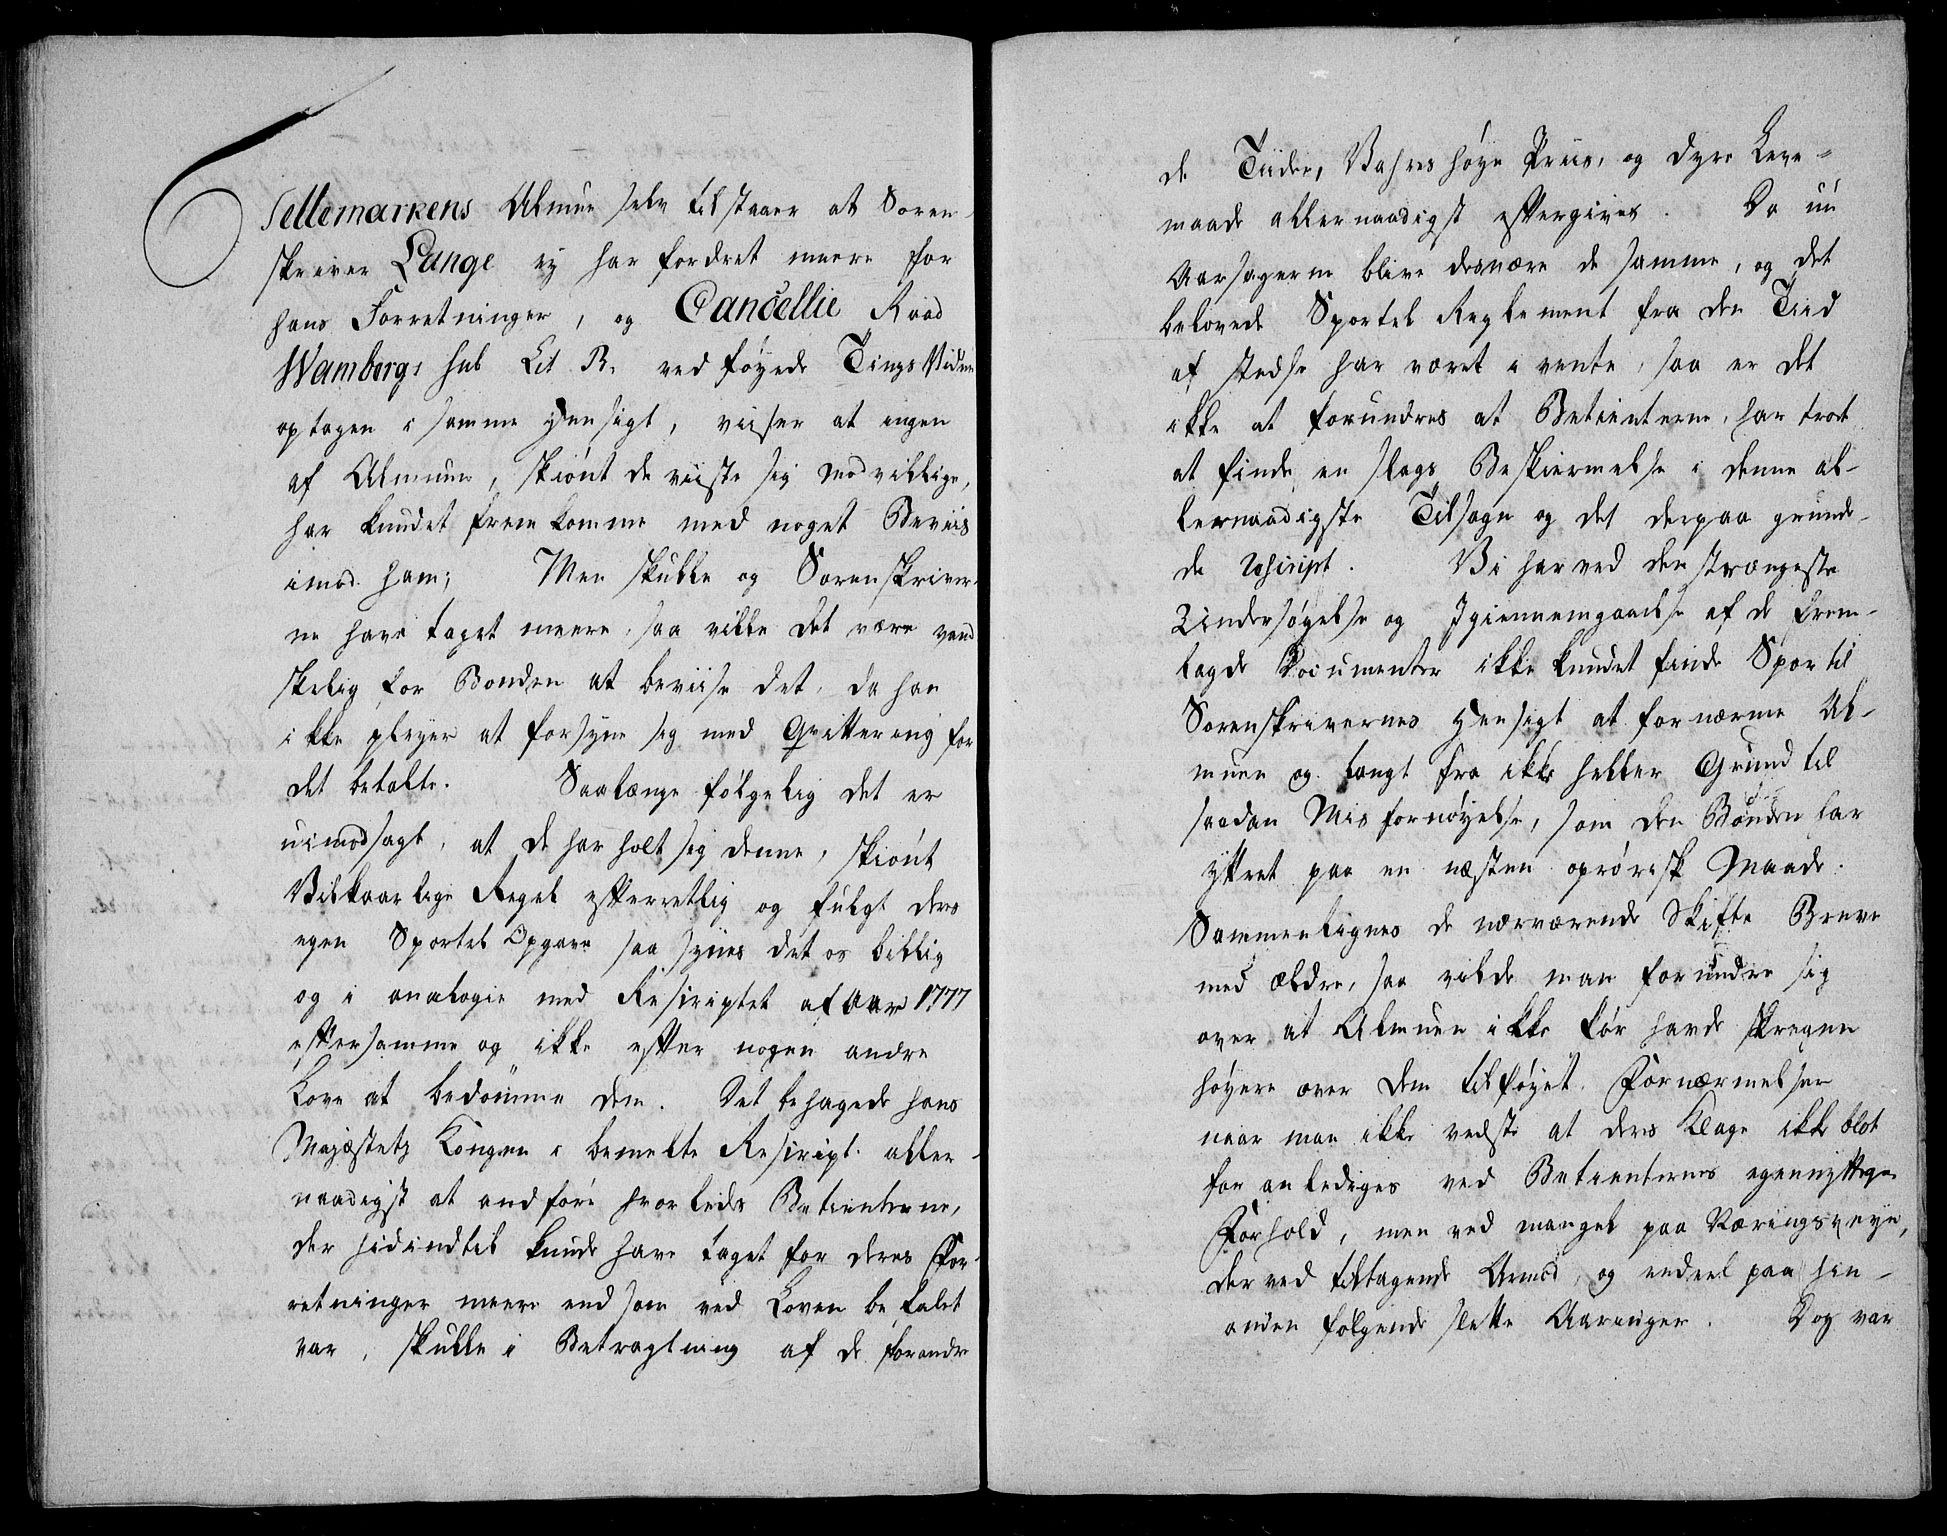 Tellemarkens Almue selv tilstaaer at Soren-
skriver Lange ey har fordret meere for
hans Forretninger, og Cancellie Raad
Wambergs sub Lit B. ved føyede Tings Vidne
optagen i samme Hensigt, viiser at ingen
af Almuen, skiönt de viiste sig modvillige,
har kundet fremkomme med noget Beviis
imod ham; Men skulle og Sorenskriver-
ne have taget meere, saa ville det være vand-
skelig for Bonden at beviise det, da han
ikke pleyer at forsyne sig med Qvittering for
det betalte. Saalænge følgelig det er
uimodsagt, at de har holt sig denne, skiönt
Vilkaarlige Regel efterretlig og fulgt deres
egen Sportel Opgave saa synes det os billig
og i analogie med Rescriptet af Aar 1777
efter samme og ikke efter nogen andre
Love at bedömme dem. Det behagede hans
Majestetz Kongen i bemelte Rescript aller-
naadigst at andföre hvorledes Betienterne,
der hidindtil kunde have taget for deres For-
retninger meere end som ved Loven befalet
var, skulle i Betragtning af de forandre
de Tiider, Vahres høye Priis, og dyre Leve-
maade allernaadigst eftergives. Da nu
Aarsagerne blive desværre de samme, og det
belovede Sportel Reglement fra den Tiid
af stedse har været i vente, saa er det
ikke at forundres at Betienterne, har troet
at finde en slags Beskiermelse i denne al-
lernaadigste Tilsagn og det derpaa grunde-
de Rescript. Vi har ved den strængeste
Undersøgelse og Igiennemgaaelse af de frem-
lagde Documenter ikke kundet finde Spor til
Sorenskrivernes Hensigt at fornærme Al-
muen og langt fra ikke heller Grund til
saadan Misfornøyelse, som den Bonden har
yttret paa en næsten oprörisk Maade.
Sammenlignes de nærværende Skifte Breve
med ældre, saa vilde man forundre sig
over at Almuen ikke før havde skregen
høyere over dem tilføyet Fornærmelser
naar man ikke vedste at deres Klage ikke blot
foranlediges ved Betienternes egennyttige
Forhold, men ved mangel paa Næringsveye,
der ved tiltagende Armod, og endeel paa hin-
anden følgende slette Aaringer. Dog var